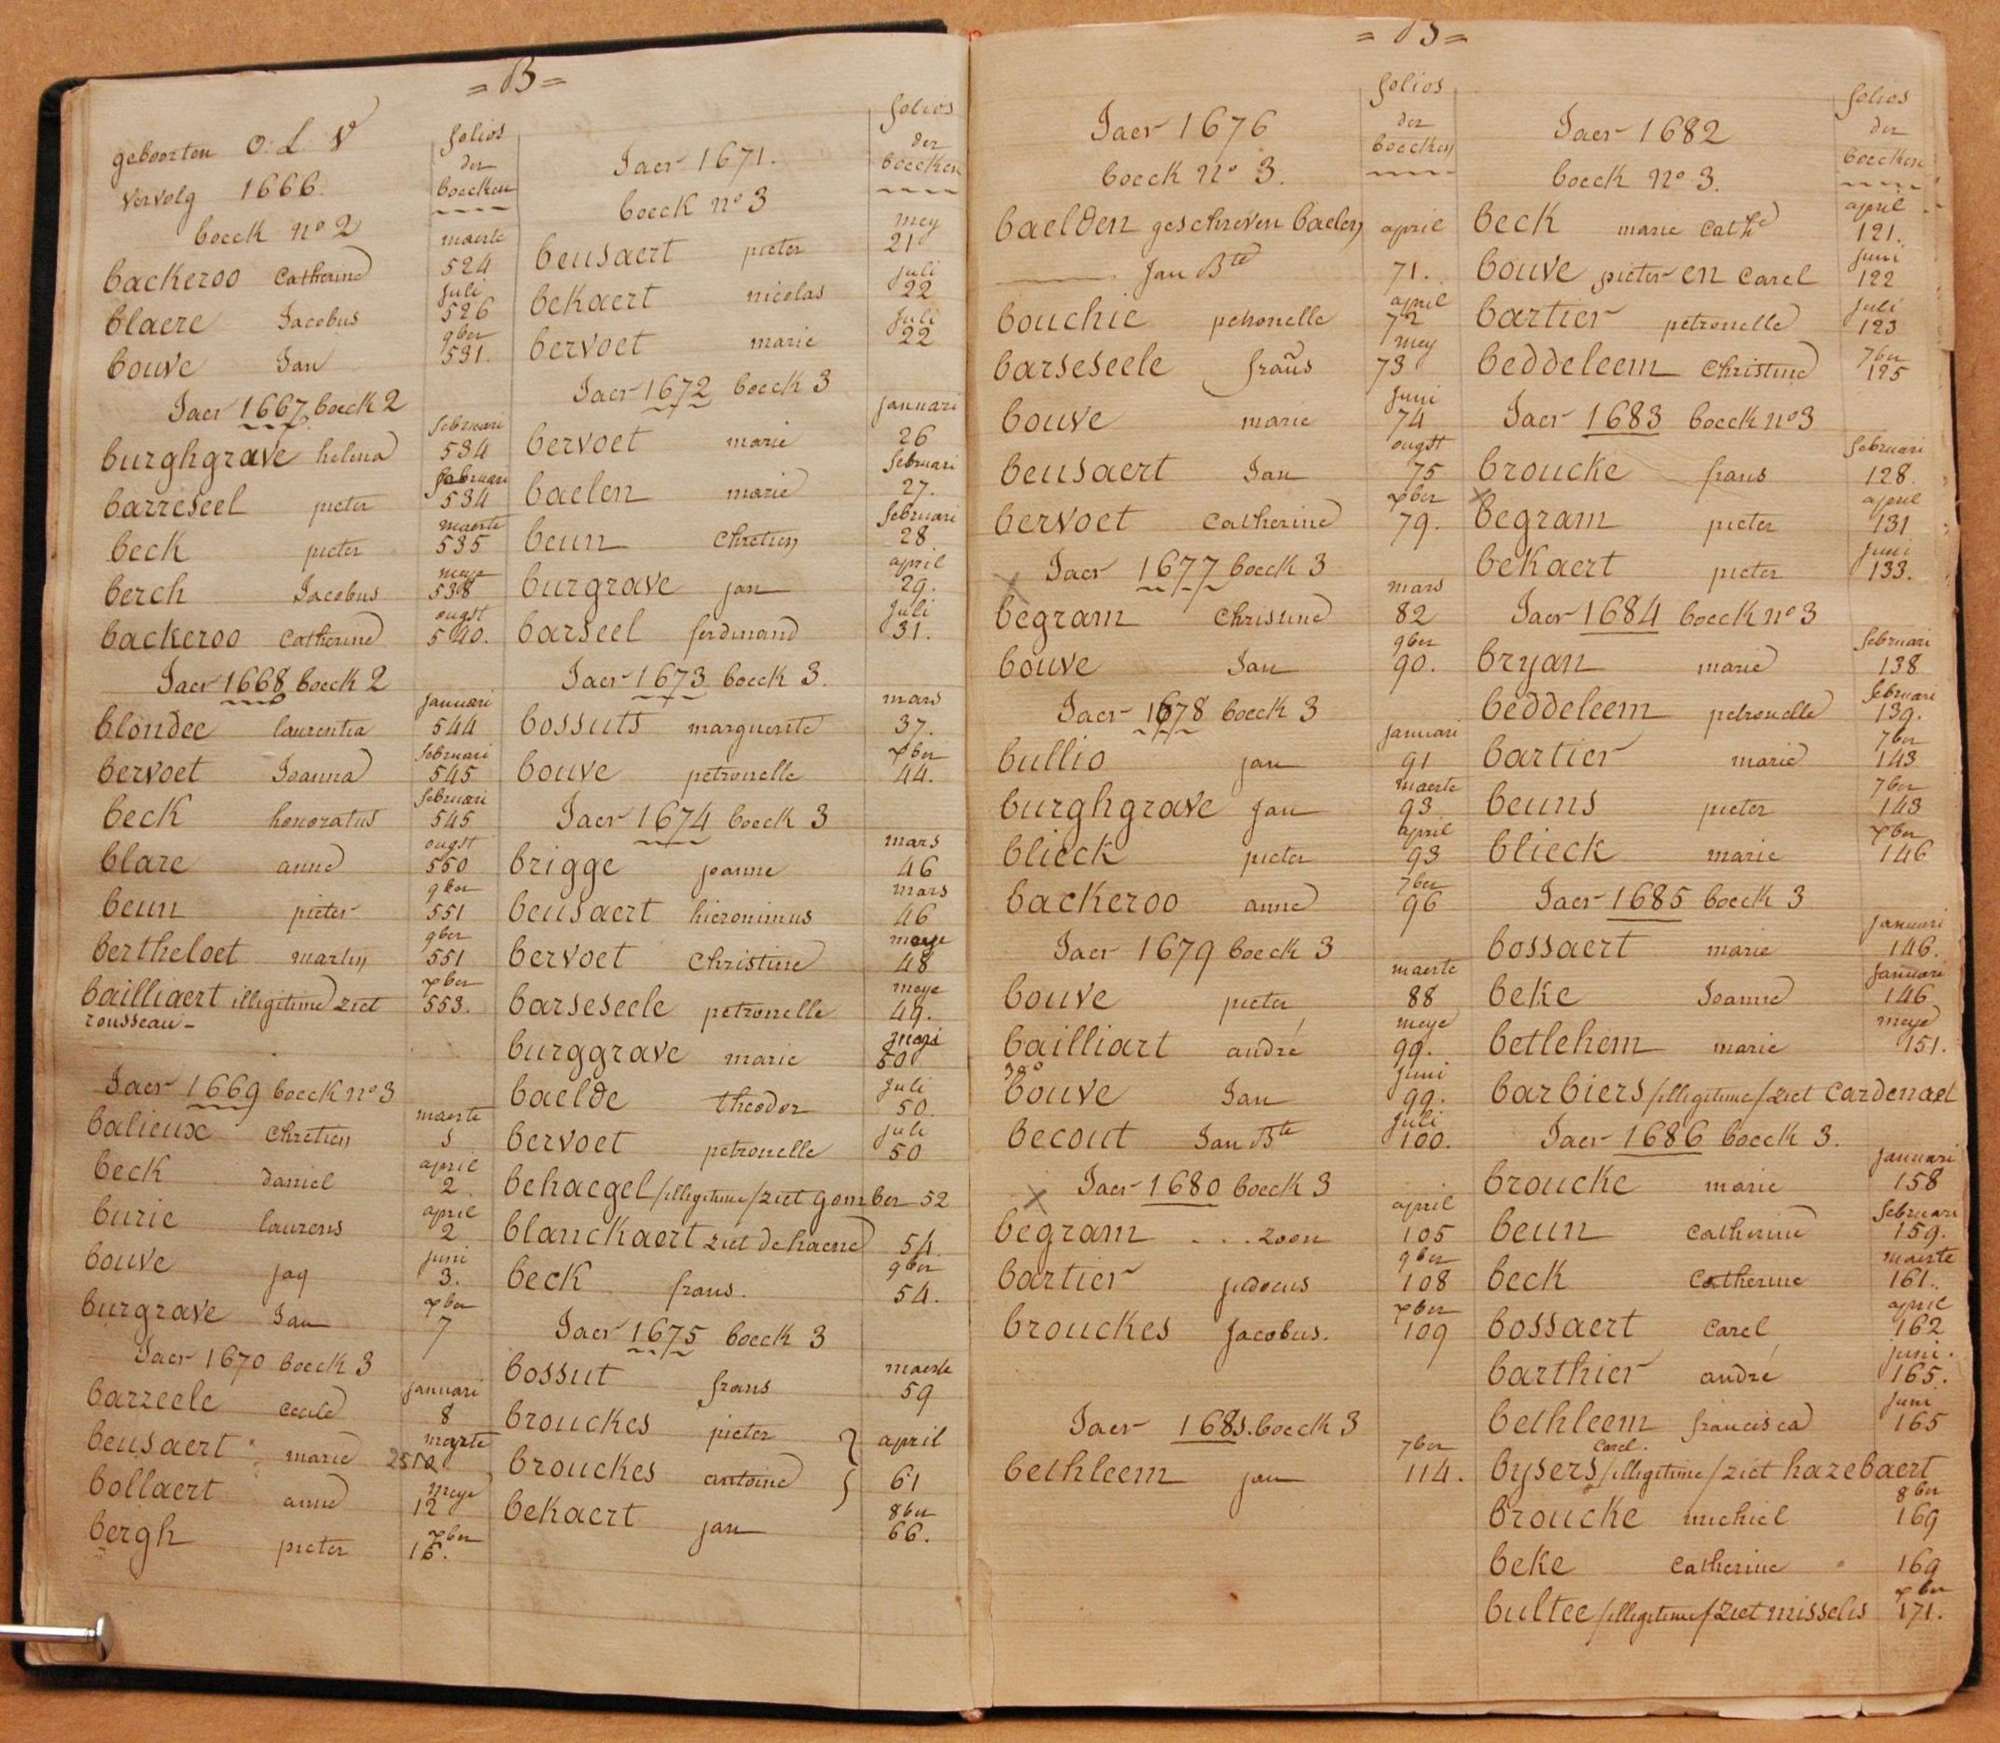 = B =
geboorten O. L. V
vervolg 1666.
boeck no 2
folios
der
boecken
backeroo Catherine maerte 524
blaere Jacobus juli 526
bouve Jan 9ber 531.
Jaer 1667 boeck 2
burghgrave helena februari 534
barreseel pieter februari 534
beck pieter maerte 535
berch Jacobus meye 538
backeroo Catherine ougst 540.
Jaer 1668 boeck 2
blondee laurentia januari 544
bervoet Joanna februari 545
beck honoratus februari 545
blare anne ougst 550
beun pieter 9ber 551
bertheloet martin 9ber 551
bailliaert illegitime ziet xber 553.
rousseau -
Jaer 1669 boeck no 3
balieux Chretien maerte 1
beck daniel april 2
burie laurens april 2
bouve jaq juni 3.
burgrave Jan xber 7
Jaer 1670 boeck 3
barzeele Cecile januari 8
beusaert marie maerte
bollaert anne meye 12
bergh pieter xber 16.
Jaer 1671.
boeck no 3
folios
der
boecken
beusaert pieter mey 21
bekaert nicolas juli 22
bervoet marie juli 22
Jaer 1672 boeck 3
bervoet marie januari 26
baelen marie februari 27.
beun Chretien februari 28
burgrave jan april 29.
barseel ferdinand juli 31.
Jaer 1673 boeck 3.
bossuts marguerite mars 37.
bouve petronelle xber 44.
Jaer 1674 boeck 3
brigge joanne mars 46
beusaert hieronimus mars 46
bervoet Christine meye 48
barseseele petronelle meye 49.
burggrave marie 50
baelde theodor juli 50.
bervoet petronelle juli 50
behaegel /illegitime/ ziet gomber 52
blanckaert ziet dehaene 54.
beck frans. 9ber 54.
Jaer 1675 boeck 3
bossut frans maerte 59
brouckes pieter } april
brouckes antoine } 61
bekaert jan 8ber 66.
= B =
Jaer 1676
boeck no 3.
folios
der
boecken
baelden geschreven baelen april
Jan Bte 71.
bouchie petronelle april 72
barseseele frans mey 73
bouve marie juni 74
beusaert Jan ougst 75
bervoet Catherine xber 79.
Jaer 1677 boeck 3
begram Christine mars 82
bouve Jan 9ber 90.
Jaer 1678 boeck 3
bullio jan januari 91
burghgrave jan maerte 93
blieck pieter april 93
backeroo anne 7ber 96
Jaer 1679 boeck 3
bouve pieter maerte 88
bailliart andré meye 99.
bouve Jan juni 99.
becout Jan Bte juli 100.
Jaer 1680 boeck 3
begram ... zoon april 105
bartier judocus 9ber 108
brouckes Jacobus. xber 109
Jaer 1681. boeck 3
bethleem jan 7ber 114.
Jaer 1682
boeck no 3.
folios
der
boecken
beck marie Cathe april 121.
bouve pieter en Carel juni 122
bartier petronelle juli 123
beddeleem Christine 7ber 125
Jaer 1683 boeck no 3
broucke frans februari 128.
begram pieter april 131
bekaert pieter juni 133.
Jaer 1684 boeck no 3
bryan marie februari 138
beddeleem petronelle februari 139.
bartier marie 7ber 143
beuns pieter 7ber 143
blieck marie xber 146
Jaer 1685 boeck 3
bossaert marie januari 146.
beke Joanne januari 146
betlehem marie meye 151.
barbiers /illegitime/ ziet Cardenael
Jaer 1686 boeck 3.
broucke marie januari 158
beun Catherine februari 159.
beck Catherine maerte 161.
bossaert Carel april 162
barthier andré juni. 165.
bethleem francisca juni 165
Carel.
bysers /illegitime/ ziet hazebaert
broucke michiel 8ber 169
beke Catherine 169
bultee /illegitime/ ziet misselis xber 171.